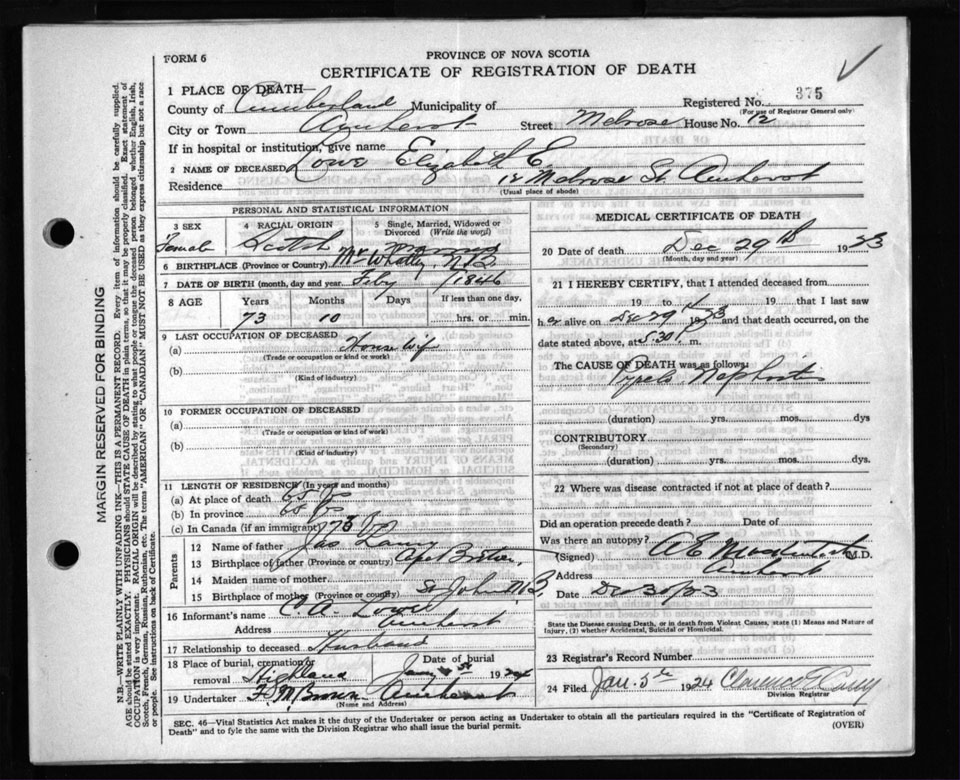 FORM 6
PROVINCE OF NOVA SCOTIA
CERTIFICATE OF REGISTRATION OF DEATH
1 PLACE OF DEATH—
Registered No. 375
(For use of Registrar General only)
County of Cumberland Municipality of
City or Town Amherst Street Melrose House No. 12
If in hospital or institution, give name
2 NAME OF DECEASED Lowe Elizabeth E
Residence 12 Melrose St. Amherst
(Usual place of abode)
PERSONAL AND STATISTICAL INFORMATION
3 SEX Female
4 RACIAL ORIGIN Scotch
5 Single, Married, Widowed or Divorced (Write the word) Married
6 BIRTHPLACE (Province or Country) N.B
7 DATE OF BIRTH (month, day and year) Feby 1846
8 AGE Years Months Days If less than one day,
73 10 hrs. or min.
9 LAST OCCUPATION OF DECEASED
(a) Housewife
(Trade or occupation or kind or work)
(b)
(Kind of industry)
10 FORMER OCCUPATION OF DECEASED
(a)
(Trade or occupation or kind of work)
(b)
(Kind of industry)
11 LENGTH OF RESIDENCE (In years and months)
(a) At place of death 65 yrs
(b) In province 65 yrs
(c) In Canada (if an immigrant) 73 yrs
Parents
12 Name of father Jas
13 Birthplace of father (Province or country)
14 Maiden name of mother
15 Birthplace of mother (Province or country) St John N.B.
16 Informant's name C A Lowe
Address Amherst
17 Relationship to deceased Husband
18 Place of burial, cremation or removal Highland
Date of burial Jany 1st 1924
19 Undertaker F. M. Brown Amherst
(Name and Address)
MEDICAL CERTIFICATE OF DEATH
20 Date of death Dec 29th 1923
(Month, day and year)
21 I HEREBY CERTIFY, that I attended deceased from
19 to 19 that I last saw
her alive on Dec 29 1923 and that death occurred, on the
date stated above, at 5.30 m.
The CAUSE OF DEATH was as follows:
(duration) yrs. mos. dys
CONTRIBUTORY
(Secondary)
(duration) yrs. mos. dys.
22 Where was disease contracted if not at place of death?
Did an operation precede death? Date of
Was there an autopsy?
(Signed) M.D.
Address Amherst
Date Dec 30/23
State the Disease causing Death, or in death from Violent Causes, state (1) Means and Nature of
Injury, (2) whether Accidental, Suicidal or Homicidal.
23 Registrar's Record Number
24 Filed Jan. 5th 1924 Clarence E Casey
Division Registrar
SEC. 46—Vital Statistics Act makes it the duty of the Undertaker or person acting as Undertaker to obtain all the particulars required in the "Certificate of Registration of
Death" and to fyle the same with the Division Registrar who shall issue the burial permit.
(OVER)
MARGIN RESERVED FOR BINDING
N.B.—WRITE PLAINLY WITH UNFADING INK—THIS IS A PERMANENT RECORD. Every item of information should be carefully supplied.
AGE should be stated EXACTLY. PHYSICIANS should STATE CAUSE OF DEATH in plain terms, so that it may be properly classified. Exact statement of
OCCUPATION is very important. RACIAL ORIGIN will be described by stating to what people or tongue the deceased person belonged whether English, Irish,
Scotch, French, German, Russian, Ruthenian, etc. The terms "AMERICAN" OR "CANADIAN" MUST NOT BE USED as they express citizenship but not a race
or people. See instructions on back of Certificate.